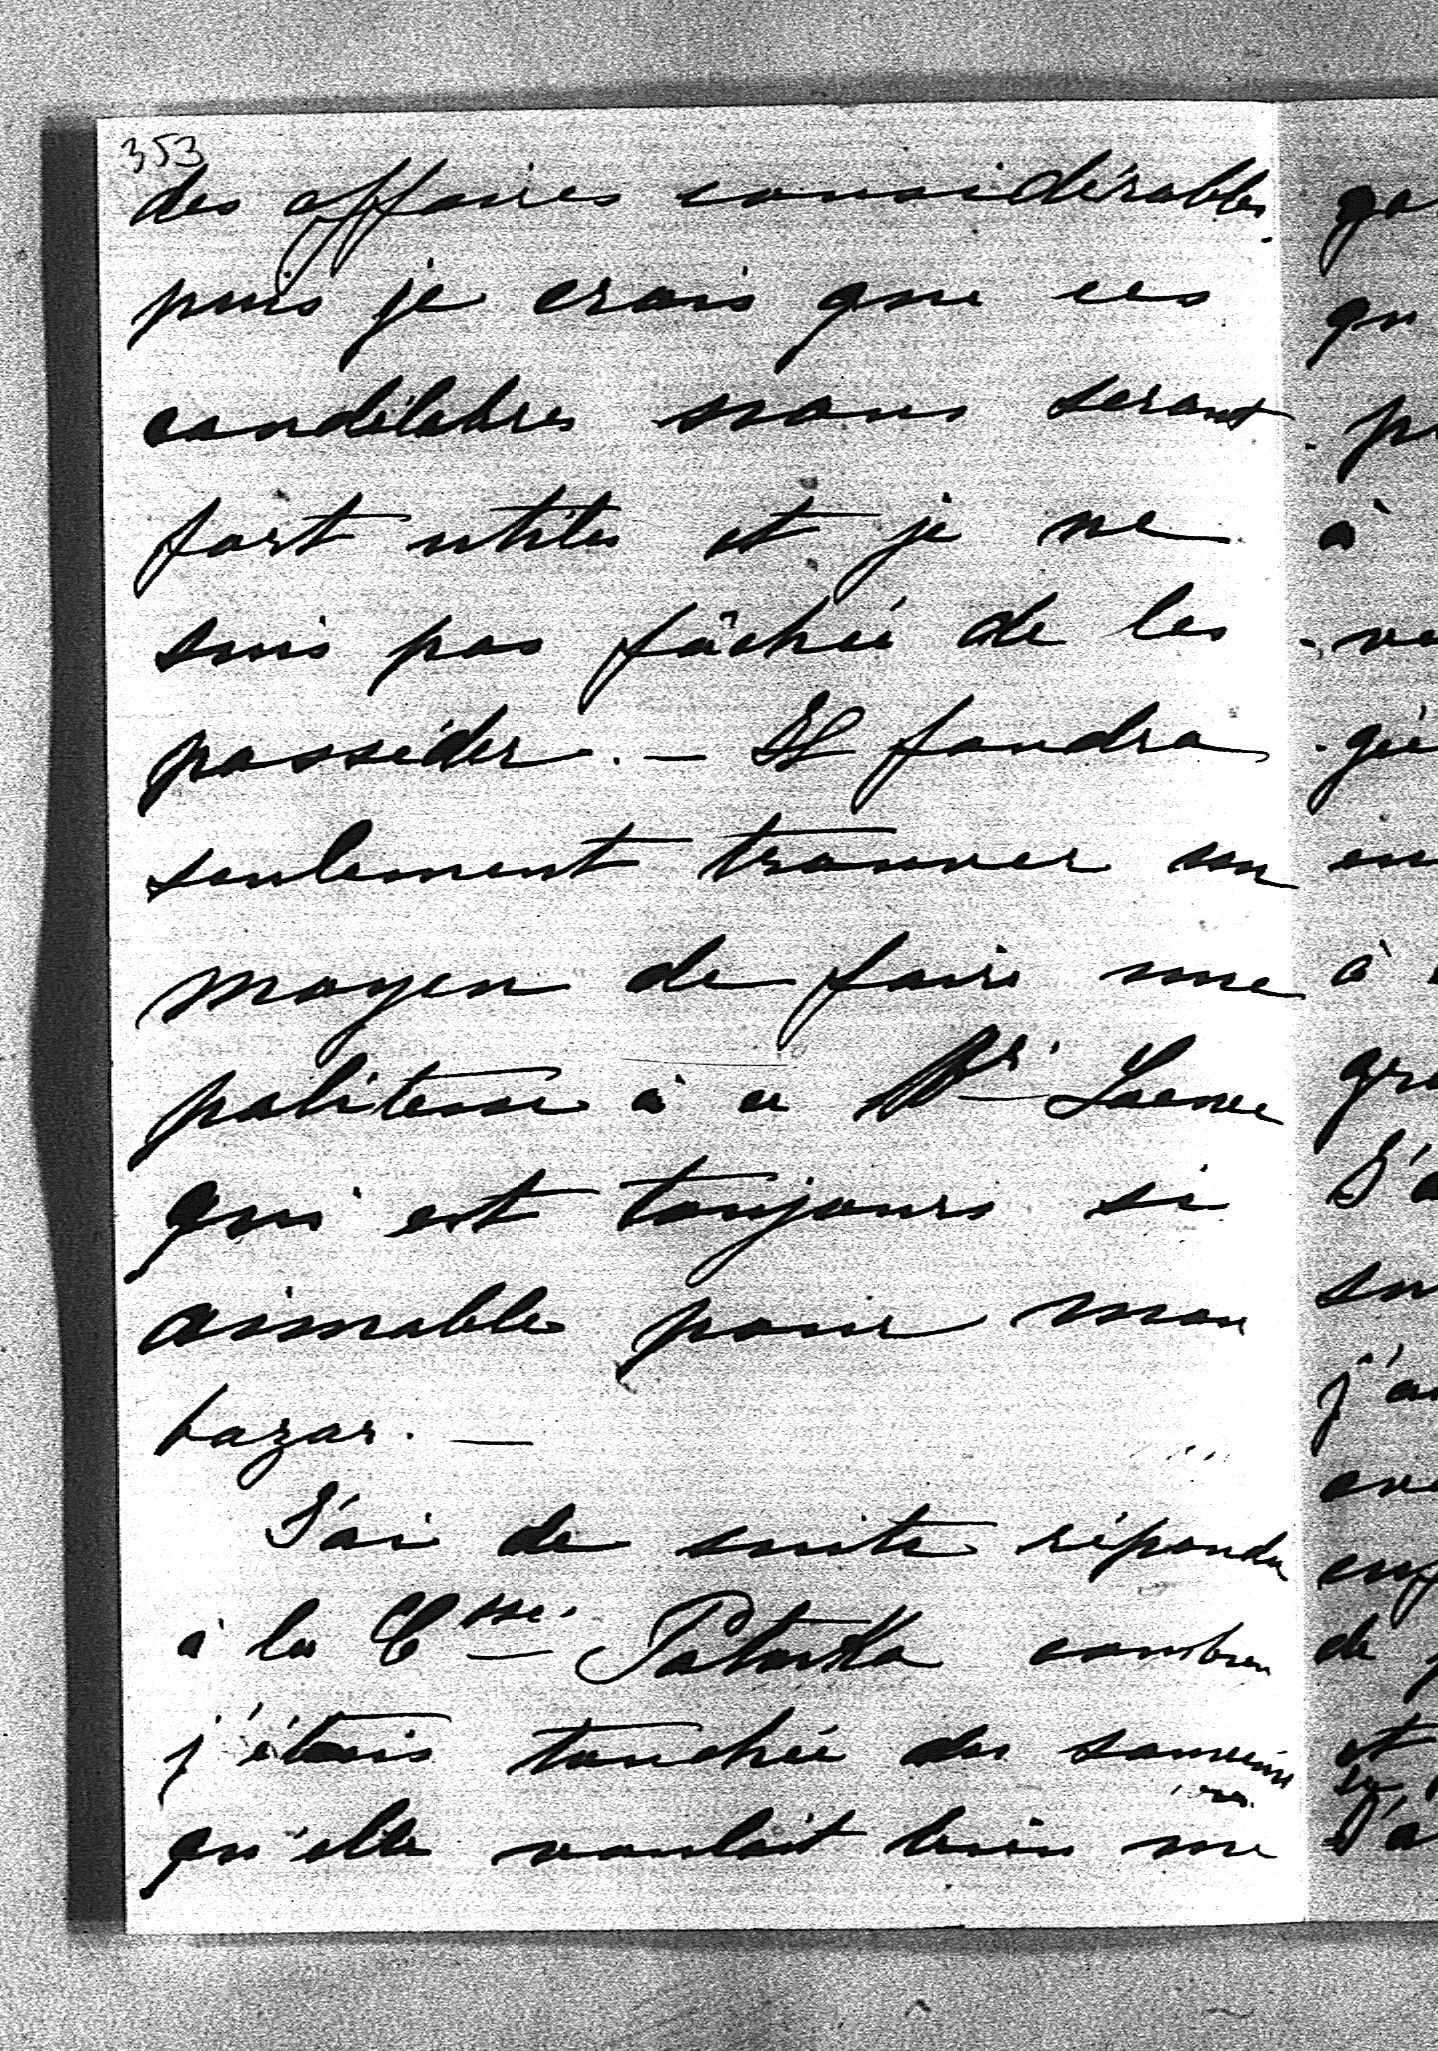 353
des affaires considérables.
puis je crois que ces
candélabres nous seront
fort utiles et je ne
suis pas fâchée de les
posséder. — Il faudra
seulement trouver un
moyen de faire une
politesse à ce Mr.
qui est toujours si
aimable pour mon
bazar. —
J'ai de suite répondu
à la Csse. Potocka combien
j'étais touchée du souvenir
qu'elle voulait bien me